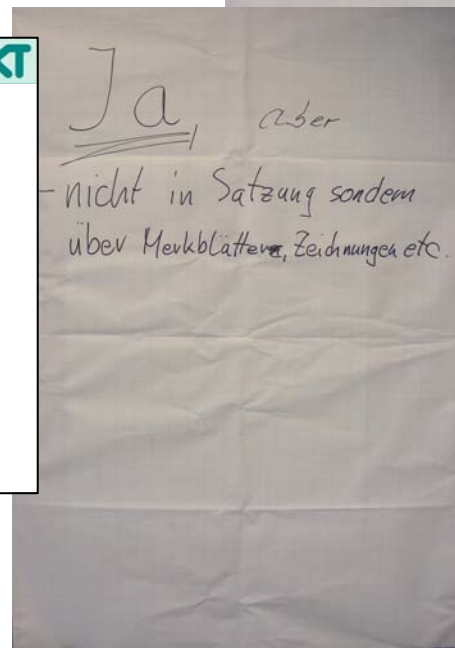 KT
Ja, aber
- nicht in Satzung sondern
über Merkblätter, Zeichnungen etc.